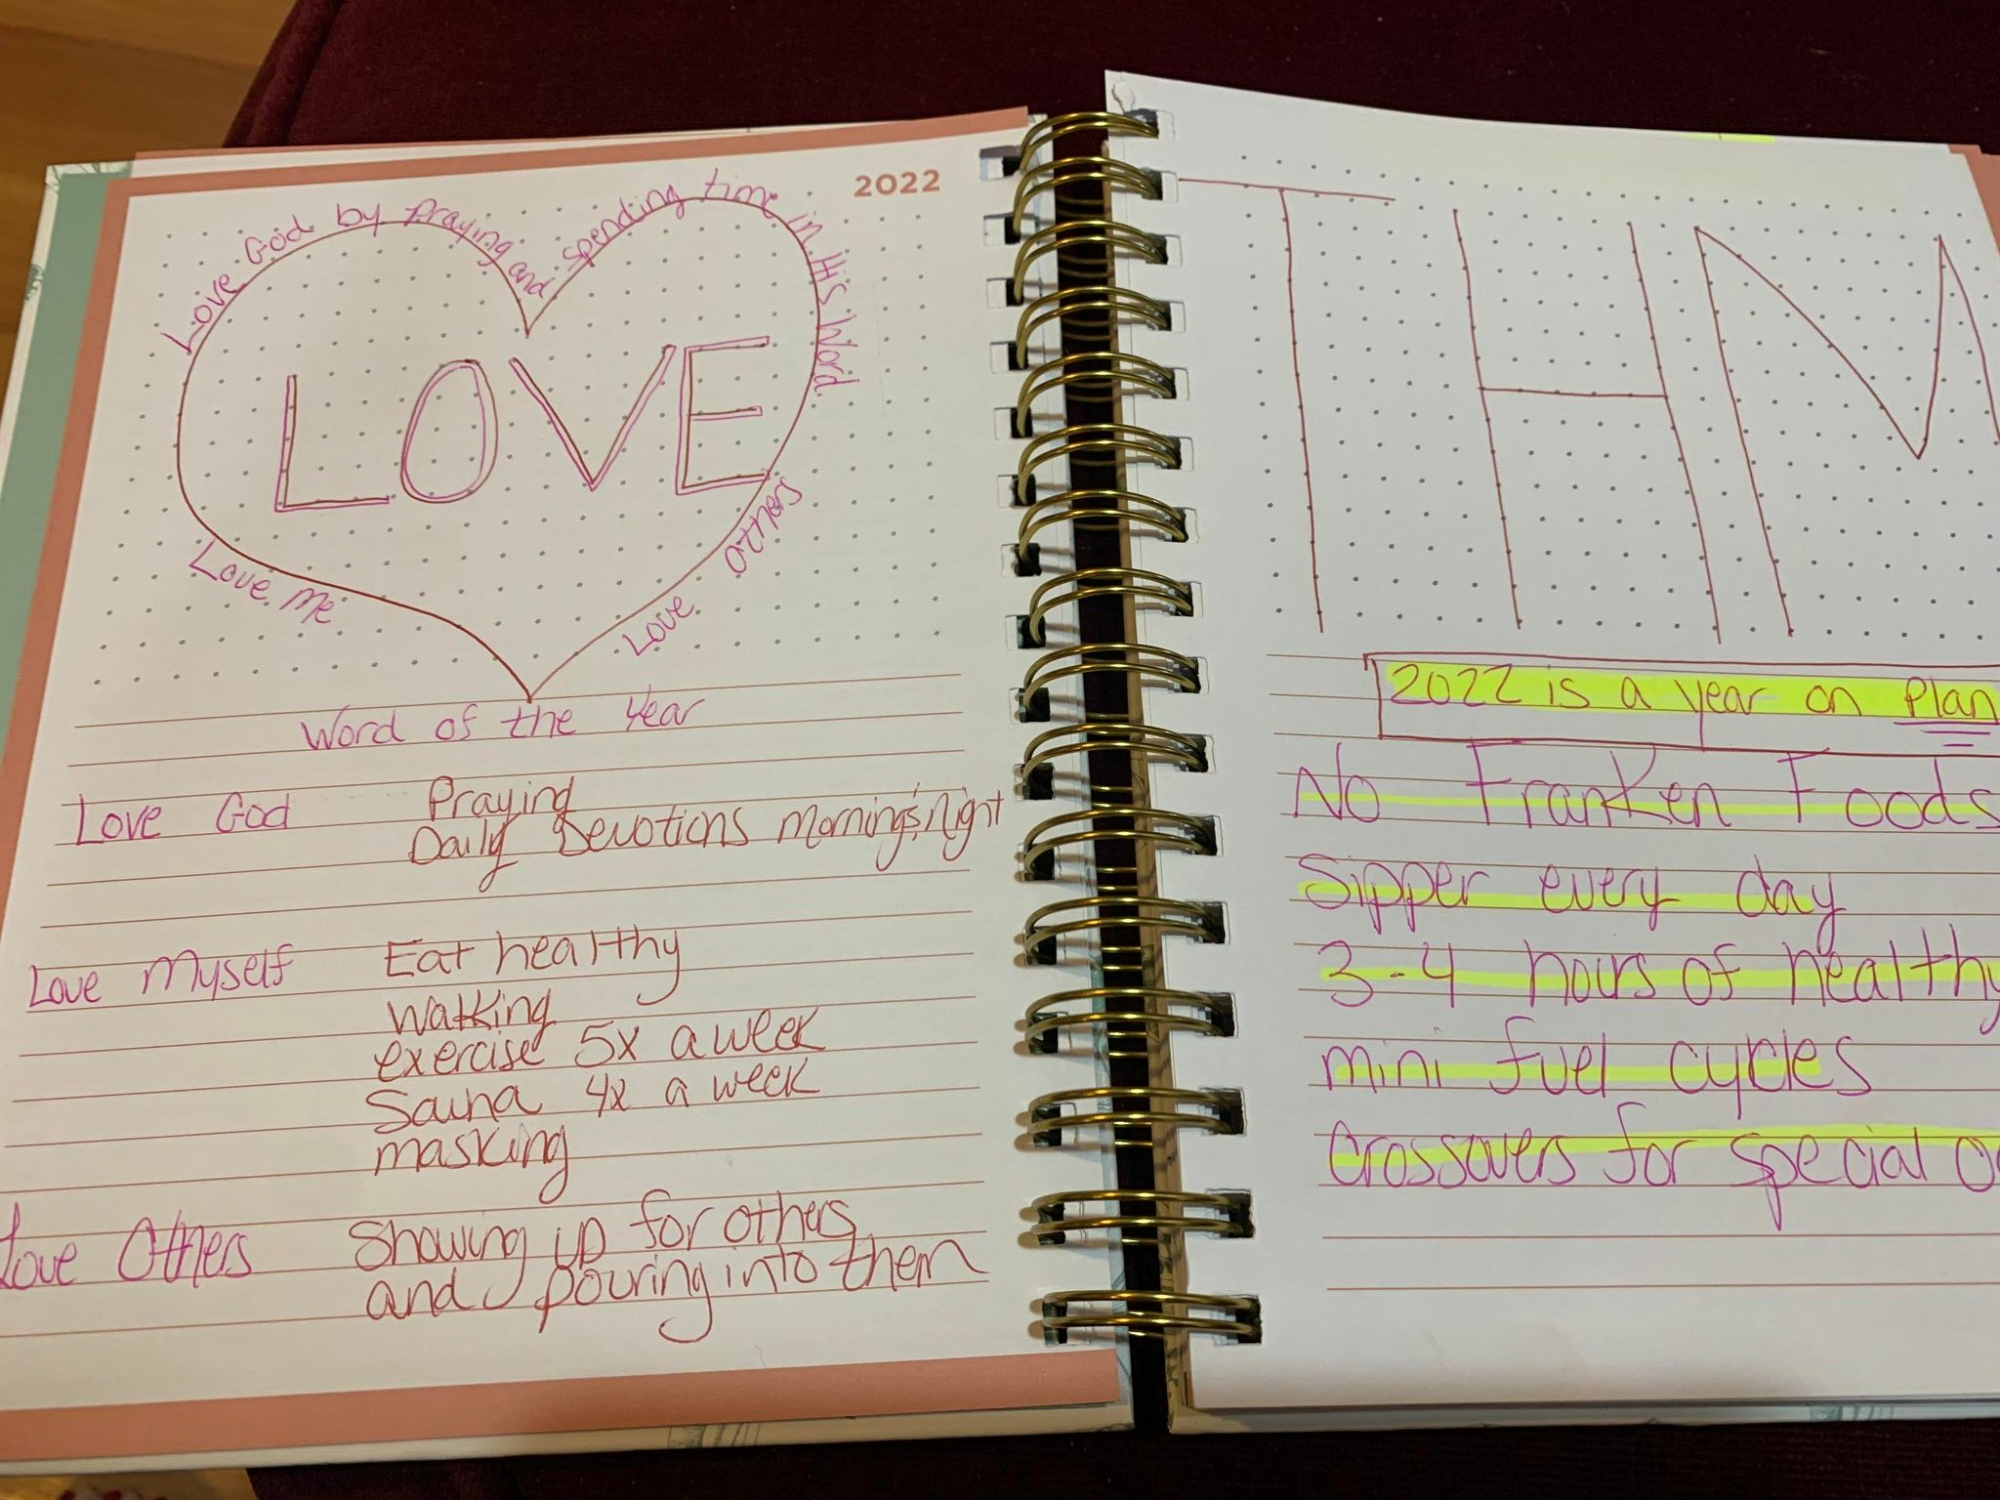 2022
Love God by Praying and Spending time in His Word
LOVE
Love Me
Love Others
Word of the Year
Love God Praying
Daily Devotions Morning & Night
Love Myself Eat healthy
Walking
exercise 5x a week
Sauna 4x a week
masking
Love Others Showing up for others
and pouring into them
THM
2022 is a year on Plan
No Franken Foods
Sipper every day
3-4 hours of healthy
mini fuel cycles
Crossovers for special